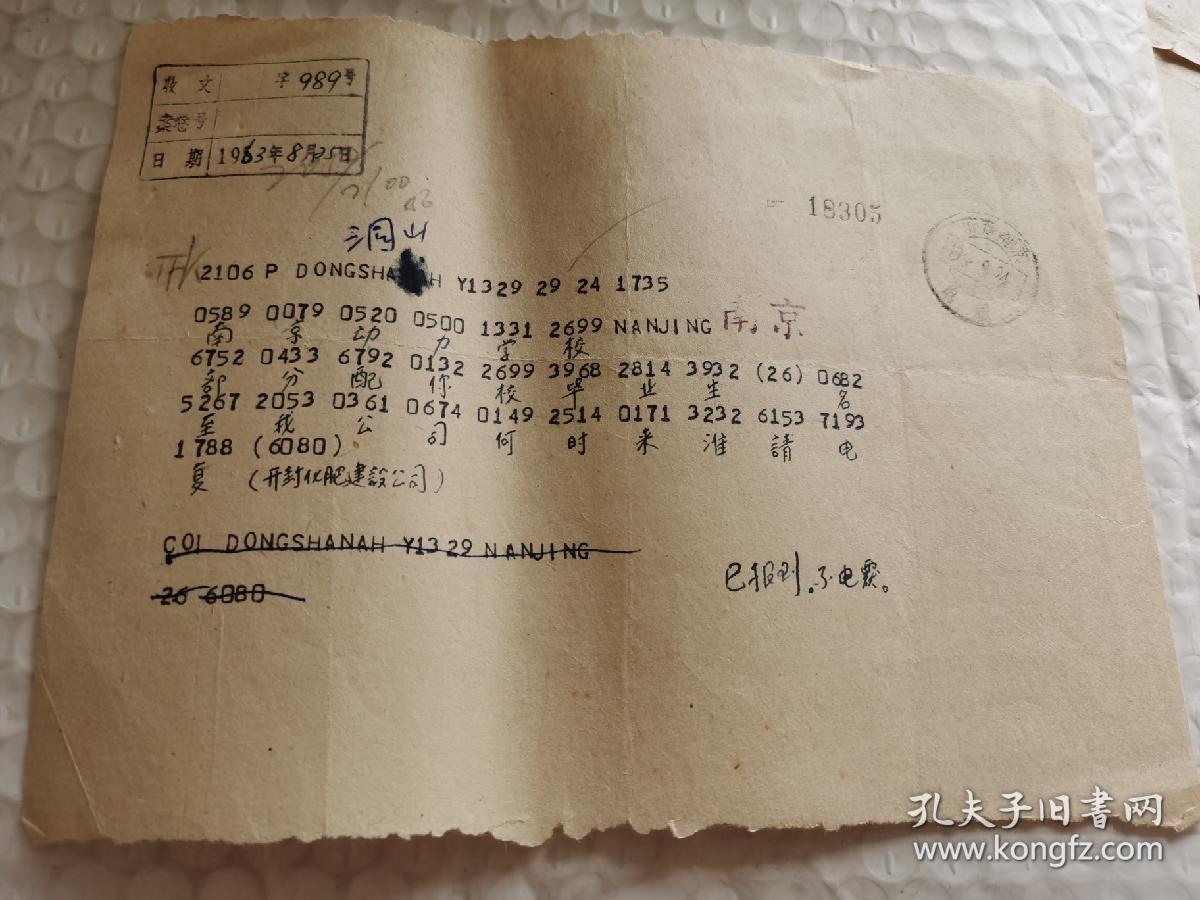 收文 字989号
案卷号
日期 1963年8月25日
18305
洞山
2106 P DONGSHANAH Y1329 29 24 1735
0589 0079 0520 0500 1331 2699 NANJING 南京
南京动力学校
6752 0433 6792 0132 2699 3968 2814 3932 (26) 0682
部分配你校毕业生 名
5267 2053 0361 0674 0149 2514 0171 3232 6153 7193
至我公司何时来淮請电
1788 (6080)
复 (开封化肥建設公司)
COI DONGSHANAH Y1329 NANJING
26 6080
已报到.不电复。
孔夫子旧書网
www.kongfz.com